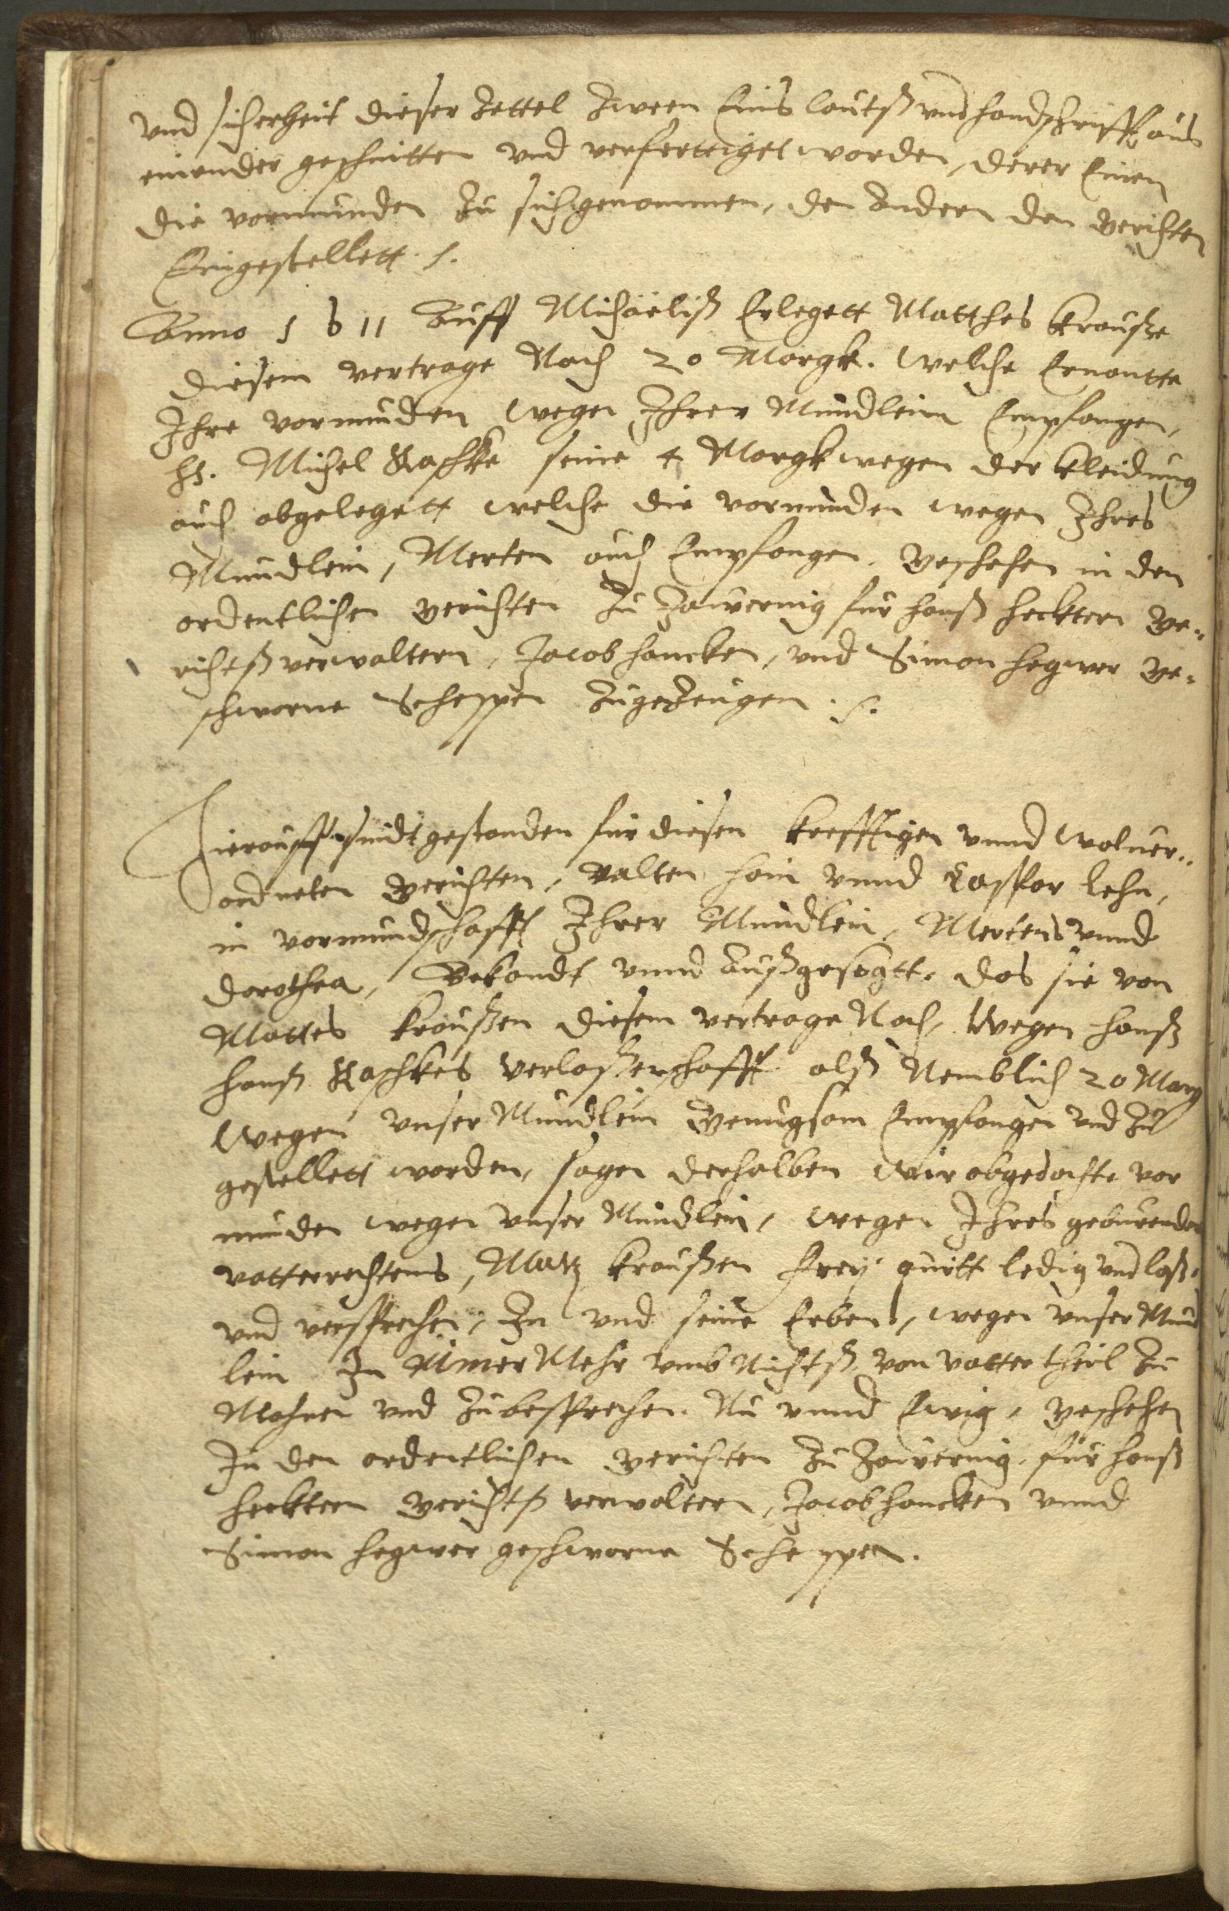 vnd sicherheit dieser Zettel Zween Eins lautß vnd handschrifft aus
einander geschnitten vnd verferttiget worden, derer Einen
die vormunden Zu sich genommen, den Andern den gerichten
Eingestellett. /.
Anno 1611 Auff Michaeliß Erlegett Matthes krauße
diesem vertrage Nach 20 Margk. welche Ernantte
Ihre vormunden wegen Ihrer Mundlein Empfangen,
Michel Raschke seine 4 Margk wegen der kleidung
auch abgelegett welche die vormunden wegen Ihres
Mundlein, Merten auch Empfangen, geschehen in den
ordentlichen gerichten Zu Zawernig für hanß hecktern ge„
richtß verwaltern, Jacob hancken, vnd Simon hegwer ge„
schworne Scheppen Zugezeugen ./.
Hierauff sindt gestanden für diesen krefftigen vnnd wolver„
ordneten gerichten, Valten hain vnnd Caspar lehn,
in vormundschafft Ihrer Mundlein, Mertens vnnd
dorothea, Bekandt vnnd Außgesagtt, das sie von
Mattes kraußen diesem vertrage Nach, Wegen hanß
hanß Raschkes verlaßenschafft alß Nemblich 20 Marg
wegen vnser Mundlein genugsam Empfangen vnd Zu
gestellett worden, sagen derhalben wir obgedachte vor
munden wegen vnser Mundlein, wegen Ihres geburenden
vatterrechtens, Matz kraußen frey quitt ledig vnd loß,
vnd versprechen, In vnd seine Erben, wegen vnser Mund
lein In Nimer Mehr vmb Nichtß von vatter theil Zu
Mahnen vnd Zubesprechen. Nu vnnd Ewig, geschehen
In den ordentlichen gerichten Zu Zawernig, für hanß
hecktern gerichtß verwaltern, Jacob hancken vnnd
Simon hegwer geschworne Scheppen.